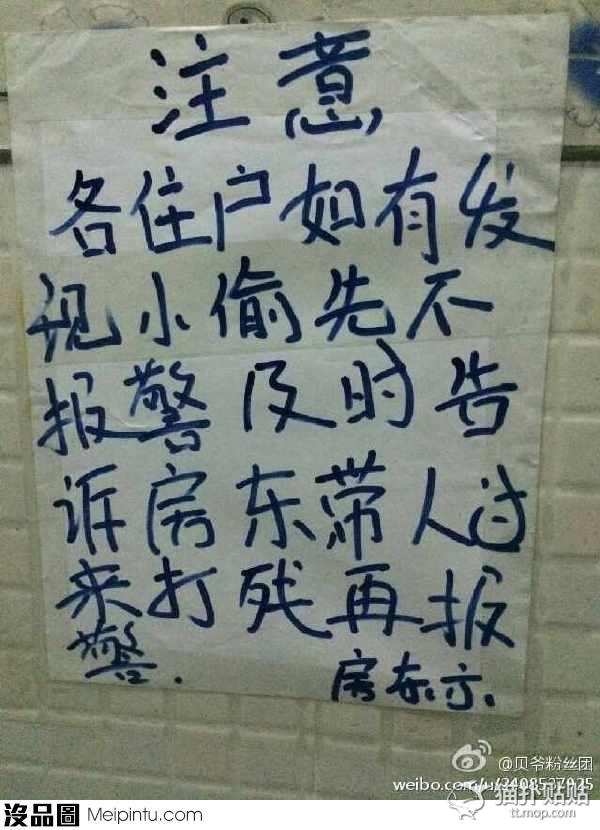 注意
各住户如有发
现小偷先不
报警及时告
诉房东带人过
来打残再报
警.
房东示.
@贝爷粉丝团
weibo.com/u/2408527925
猫扑贴贴
tt.mop.com
沒品圖 Meipintu.com